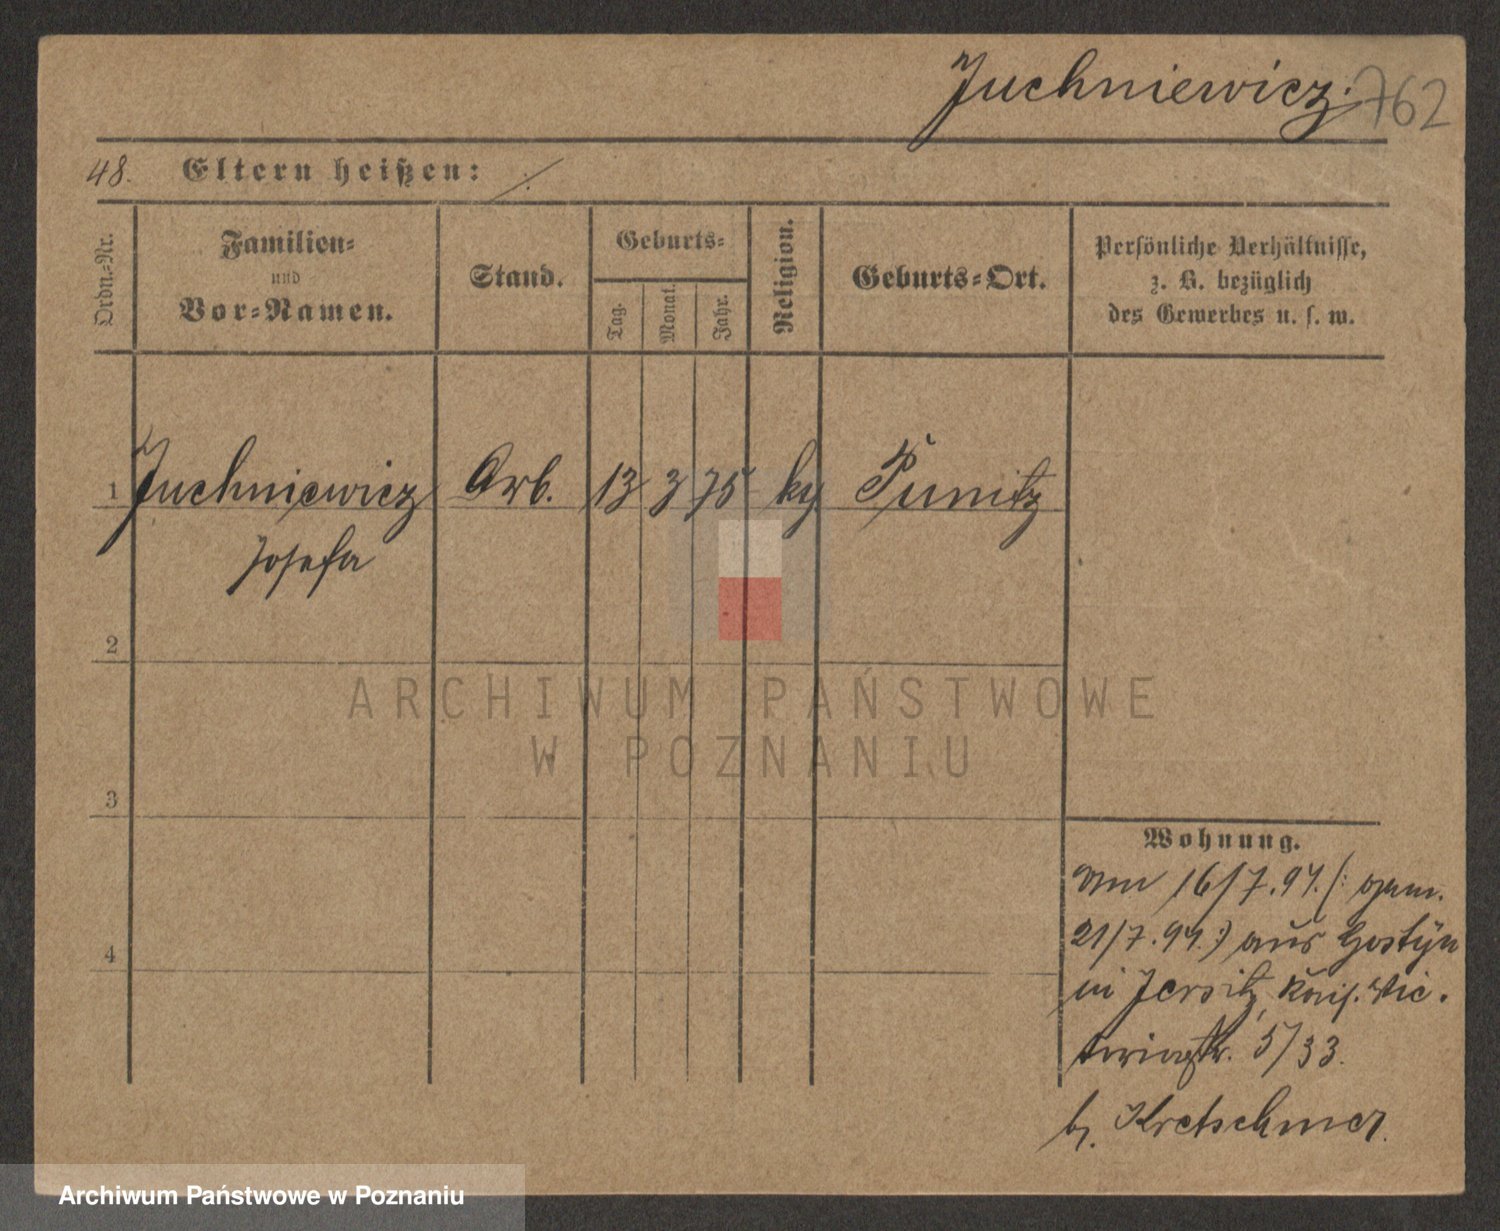 Juchniewicz. 762
48. Eltern heißen: ./.
Ordn.-Nr.
Familien-
und
Vor-Namen.
Stand.
Geburts-
Tag.
Monat.
Jahr.
Religion.
Geburts-Ort.
Persönliche Verhältnisse,
z. B. bezüglich
des Gewerbes u. s. w.
1 Juchniewicz Arb. 13 3 75 kg. Punitz
Josefa
2
3
4
ARCHIWUM PAŃSTWOWE
W POZNANIU
Wohnung.
am 16/7.94. (: gem.
21/7.94.:) aus Gostÿn
in Jersitz, Kais. Vic-
toriastr. 5/33.
b. Kretschmer.
Archiwum Państwowe w Poznaniu